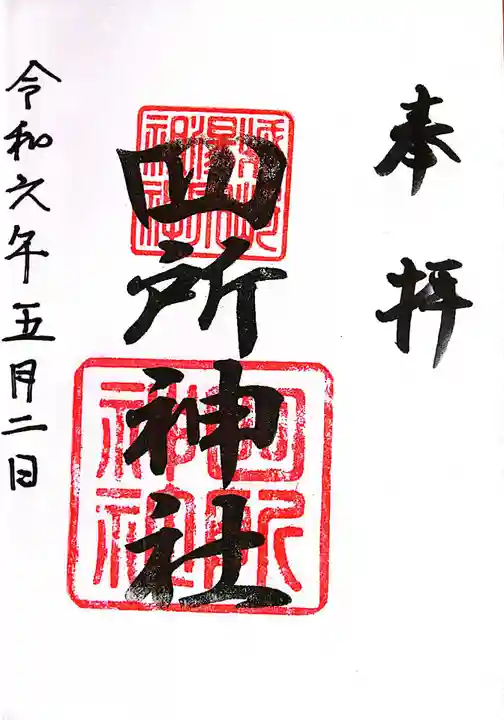 奉拝
四所神社
四所
神社
令和六年五月二日